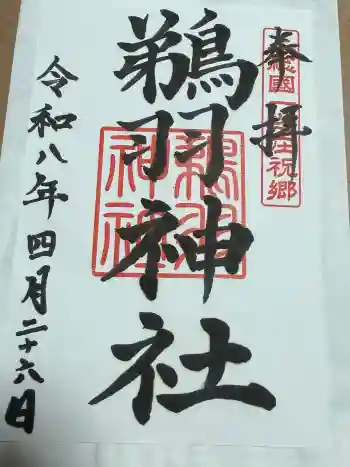 奉拝
總國 社祝郷
鵜羽神社
令和八年四月二十六日